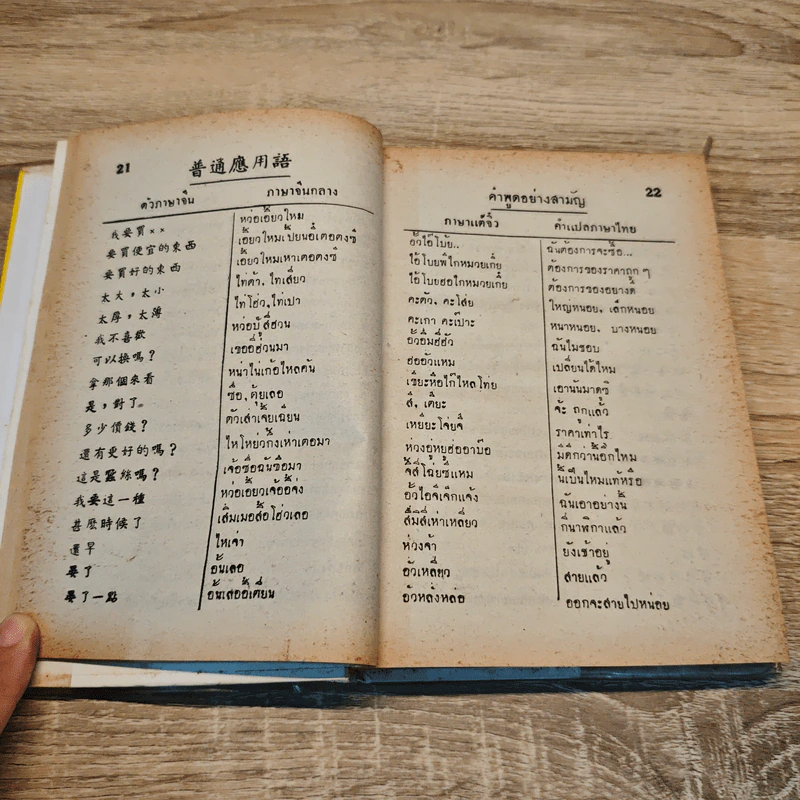 21
普通應用語
ตัวภาษาจีน
ภาษาจีนกลาง
我要買××
要買便宜的東西
要買好的東西
太大，太小
太厚，太薄
我不喜歡
可以換嗎？
拿那個來看
是，對了。
多少價錢？
還有更好的嗎？
這是蠶絲嗎？
我要這一種
甚麽時候了
還早
晏了
晏了一點
หว่อเอี้ยวใหม่
เอี้ยวใหม่เปี้ยนอี๋เตอตงซี
เอี้ยวใหม่เห่าเตอตงซี
ไท่ต้า, ไท่เสี่ยว
ไท่โฮ่ว, ไท่เปา
หว่อบู้สี่ฮวน
เขออี่ฮ่วนมา
หน่าไน่เก้อไหลคัน
ซื่อ, ตุ้ยเลอ
ตัวเส่าเจี้ยเฉียน
ไหโหย่วกิ้งเห่าเตอมา
เจ้อซื่อฉันซือมา
หว่อเอี้ยวเจ้ออี้จ่ง
เสิมเมอสือโฮ่วเลอ
ไหเจ่า
อั้นเลอ
อั้นเลออี้เตี่ยน
22
คำพูดอย่างสามัญ
ภาษาแต้จิ๋ว
คำแปลภาษาไทย
อั๊วไอ๊โบ้ย..
ไอ๊โบยพี้ไกหมวยเกี๋ย
ไอ๊โบยฮอไกหมวยเกี๋ย
คะตัว, คะโส่ย
คะเกา คะเป๊าะ
อั๊วอึ่มฮี่ฮัว
ฮ่ออัวแหม
เขี่ยะหือไก๊ไหลโท่ย
สี่, เตี๊ยะ
เหยี่ยะโจ่ยจี๊
ห่วงอู่หยูฮ่ออาบ๊อ
จี้สี่โฉ่ยซี้แหม
อั๊วไอจี้เจ็กแจ้ง
สี่มีสี่เห่าเหลี่ยว
ห่วงจ้า
อัวเหลี่ยว
อัวหลั่งหล่อ
ฉันต้องการจะซื้อ...
ต้องการของราคาถูก ๆ
ต้องการของอย่างดี
ใหญ่หน่อย, เล็กหน่อย
หนาหน่อย, บางหน่อย
ฉันไม่ชอบ
เปลี่ยนได้ไหม
เอานั่นมาดูซิ
จ้ะ ถูกแล้ว
ราคาเท่าไร
มีดีกว่านี้อีกไหม
นี่เป็นไหมแท้หรือ
ฉันเอาอย่างนี้
กี่นาฬิกาแล้ว
ยังเช้าอยู่
สายแล้ว
ออกจะสายไปหน่อย